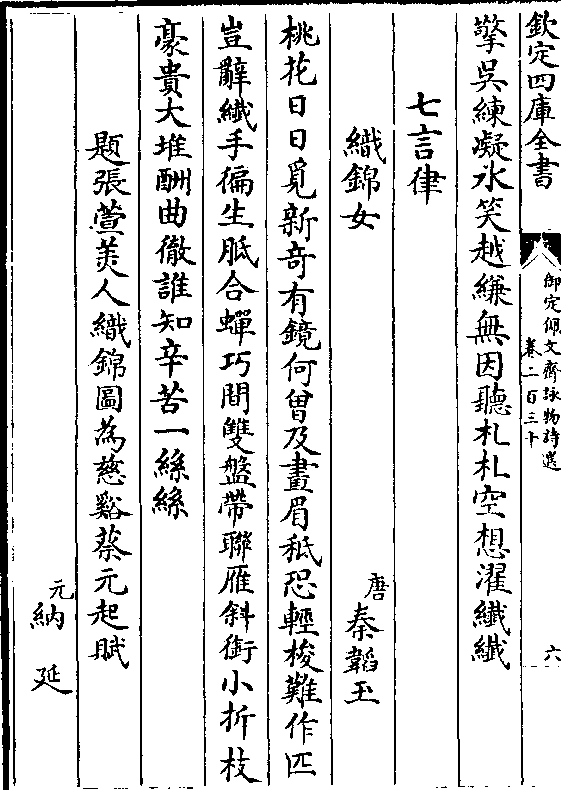 欽定四庫全書
御定佩文齋詠物詩選
卷二百三十
六
擎吳練凝氷笑越縑無因聽札札空想濯纎纎
七言律
織錦女
唐秦韜玉
桃花日日覓新奇有鏡何曾及畫眉秪恐輕梭難作匹
豈辭纎手徧生胝合蟬巧間雙盤帶聯雁斜銜小折枝
豪貴大堆酬曲徹誰知辛苦一絲絲
題張萱美人織錦圖為慈谿蔡元起賦
元納延